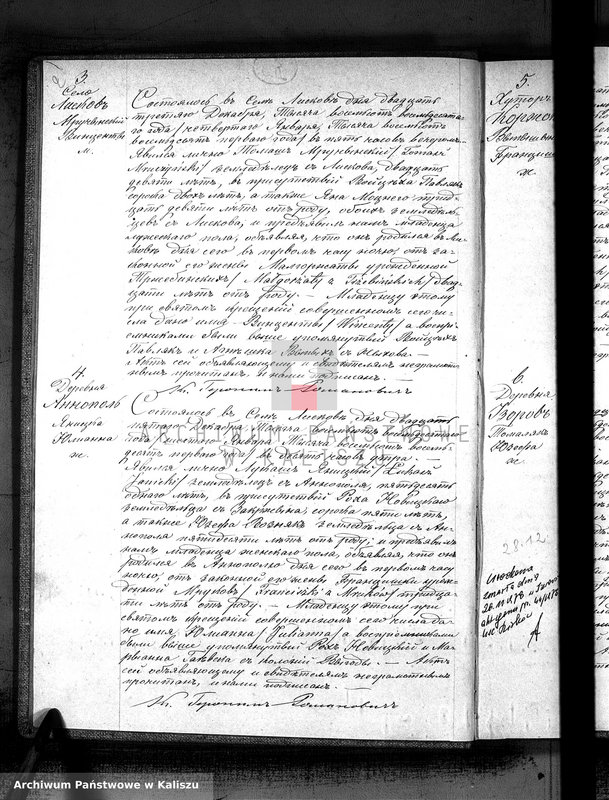 3.
Село
Лисковъ
Мручинскій
Винцентъ
м.
Состоялось въ Селѣ Лисковѣ дня двадцать
третьяго Декабря, Тысяча восемьсотъ восемьдесята-
го года /четвертаго Января, Тысяча восемьсотъ
восемьдесятъ перваго года/ въ пять часовъ вечеромъ.
Явился лично Томашъ Мручинскій /Tomasz
земледѣлецъ съ Лискова, двадцать
девяти лѣтъ, въ присутствіи Войцѣха Павляка
сорока двохъ лѣтъ, а также Яна трид-
цать девяти лѣтъ отъ роду, обоихъ земледѣль-
цевъ съ Лискова, и предъявилъ намъ младенца
мужескаго пола, объявляя, что онъ родился въ Ли-
сковѣ дня сего въ первомъ часу ночью, отъ за-
конной его жены Малгоржаты урожденной
/Małgorzaty z двад-
цати лѣтъ отъ роду. — Младенцу этому
при святомъ крещеніи совершенномъ сего чи-
сла дано имя Винцентъ /Wincenty/ а воспрі-
емниками были выше упомянутый Войцѣхъ
Павлякъ и Агнешка съ Лискова. —
Актъ сей объявляющему и свидѣтелямъ неграмот-
нымъ прочитанъ. И нами подписанъ. —
Кс. Геронимъ Романовичъ
4.
Деревня
Аннополь
Яницка
Юлианна
ж.
Состоялось въ Селѣ Лисковѣ дня двадцать
пятаго Декабря Тысяча восемьсотъ восемьдесятаго
года /шестаго Января Тысяча восемьсотъ восемь-
десятъ перваго года/ въ часовъ утра.
Явился лично Лукашъ Яницкій /Łukasz
Janicki/ земледѣлецъ съ Аннополя, пятьдесятъ
одного лѣтъ, въ присутствіи Роха Новицкаго
земледѣльца съ Закржевка, сорока пяти лѣтъ,
а также Юзефа Возняка земледѣльца съ Ан-
нополя пятидесяти лѣтъ отъ роду; и предъявилъ
намъ младенца женскаго пола, объявляя, что онъ
родился въ Аннополю дня сего въ первомъ часу
ночью, отъ законной его жены Францишки урож-
денной Мруковъ /Franciszki z Mruków/ тридца-
ти лѣтъ отъ роду. — Младенцу этому при
святомъ крещеніи совершенномъ сего числа да-
но имя Юлианна /Julianna/ а воспріемниками
были выше упомянутый Рохъ Новицкій и Ма-
рьянна съ колоніи — Актъ
сей объявляющему и свидѣтелямъ неграмотнымъ
прочитанъ, и нами подписанъ. —
Кс. Геронимъ Романовичъ
5.
Хуторъ
ж
6.
Деревня
Зборовъ
Юзефа
ж.
28.12.
zmarła dnia
A
ARCHIWUM PAŃSTWOWE
W KALISZU
Archiwum Państwowe w Kaliszu